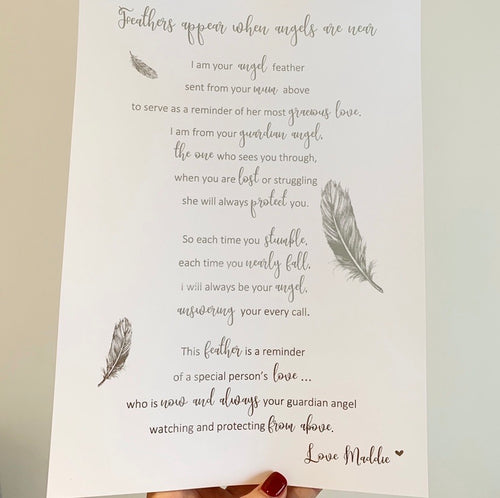 Feathers appear when angels are near
I am your angel feather
sent from your mum above
to serve as a reminder of her most gracious love.
I am from your guardian angel,
the one who sees you through,
when you are lost or struggling
she will always protect you.
So each time you stumble,
each time you nearly fall,
i will always be your angel,
answering your every call.
This feather is a reminder
of a special person's love ...
who is now and always your guardian angel
watching and protecting from above.
Love Maddie ♥